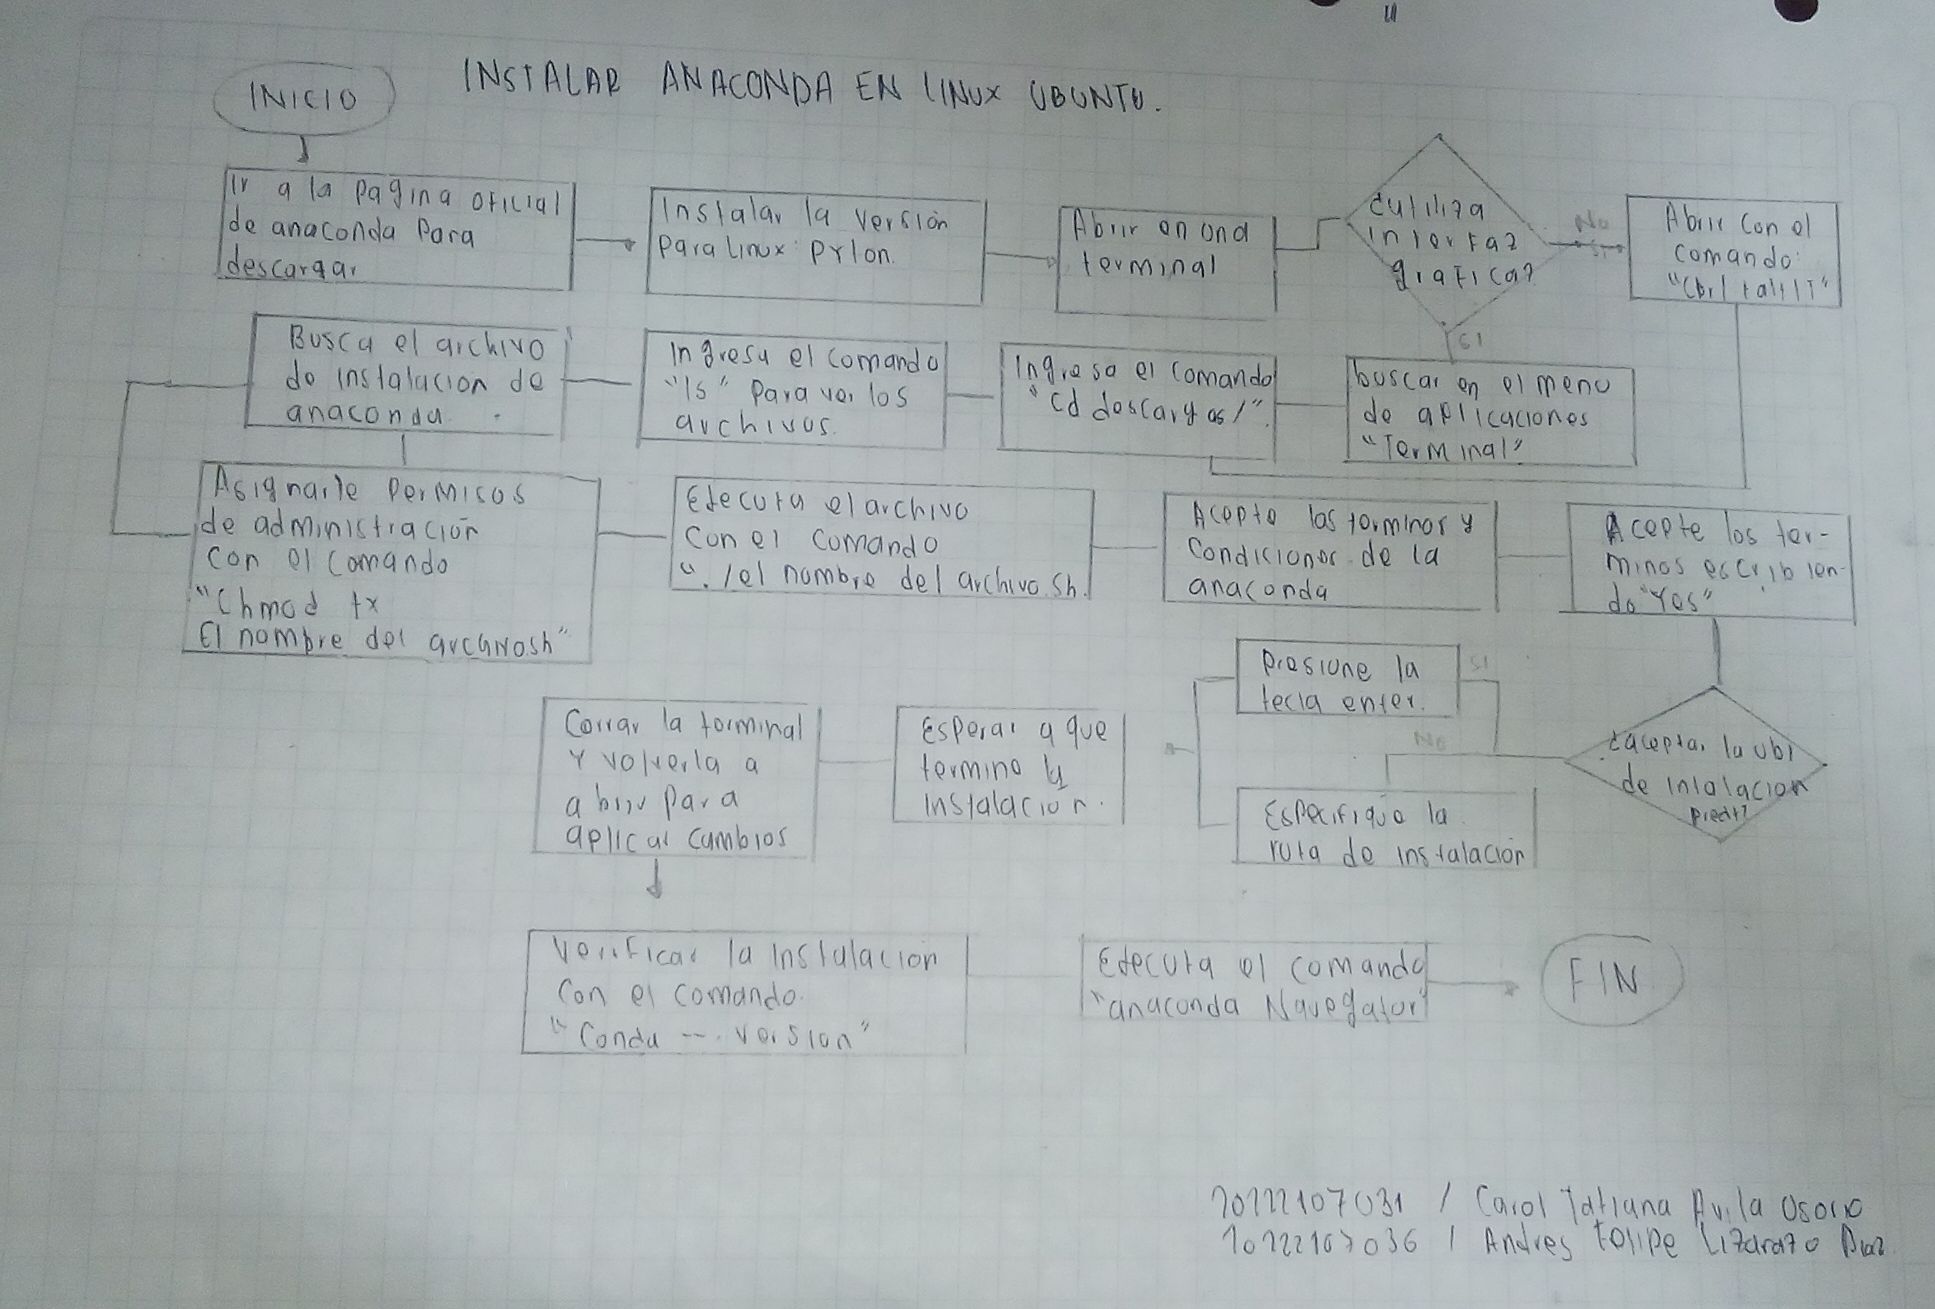 INSTALAR ANACONDA EN LINUX UBUNTU.
INICIO
Ir a la pagina oficial
de anaconda para
descargar
Instalar la version
para linux: Pylon.
Abrir en una
terminal
¿utiliza
interfaz
grafica?
No
SI
Abrir con el
comando:
"Ctrl + alt + T"
SI
buscar en el menu
de aplicaciones
"Terminal"
Ingresa el comando
"cd descargas/".
Ingresa el comando
"ls" para ver los
archivos.
Busca el archivo
de instalacion de
anaconda.
Asignarle permisos
de administración
con el comando
"chmod +x
El nombre del archivosh"
Ejecuta el archivo
con el comando
"./el nombre del archivo.sh.
Acepte los terminos y
condiciones de la
anaconda
Acepte los ter-
minos escribien-
do "Yes"
¿aceptar la ubi
de intalacion
predt?
SI
Presione la
tecla enter.
NO
Especifique la
ruta de instalación
Esperar a que
termine la
instalación.
Cerrar la terminal
y volverla a
abrir para
aplicar cambios
Verificar la instalacion
con el comando.
"Conda --. version"
Ejecuta el comando
"anaconda Navegator"
FIN
20222107031 / Carol Tatiana Avila Osorio
20222107036 / Andres Felipe Lizarazo